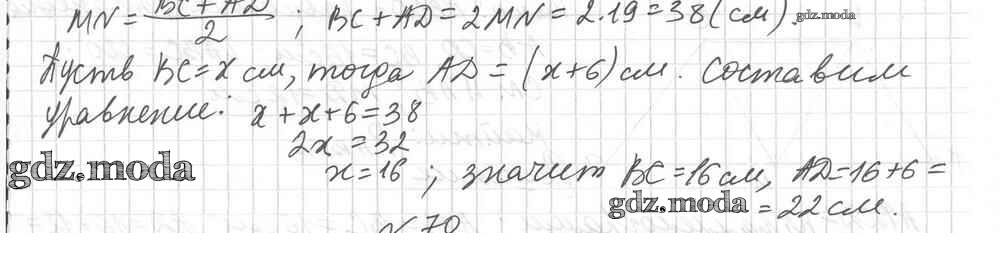 MN = BC + AD / 2 ; BC + AD = 2MN = 2·19 = 38 (см). gdz.moda
Пусть BC = x см, тогда AD = (x+6) см. Составим
уравнение: x + x + 6 = 38
2x = 32
gdz.moda
x = 16 ; значит BC = 16 см, AD = 16 + 6 =
gdz.moda = 22 см.
№ 70